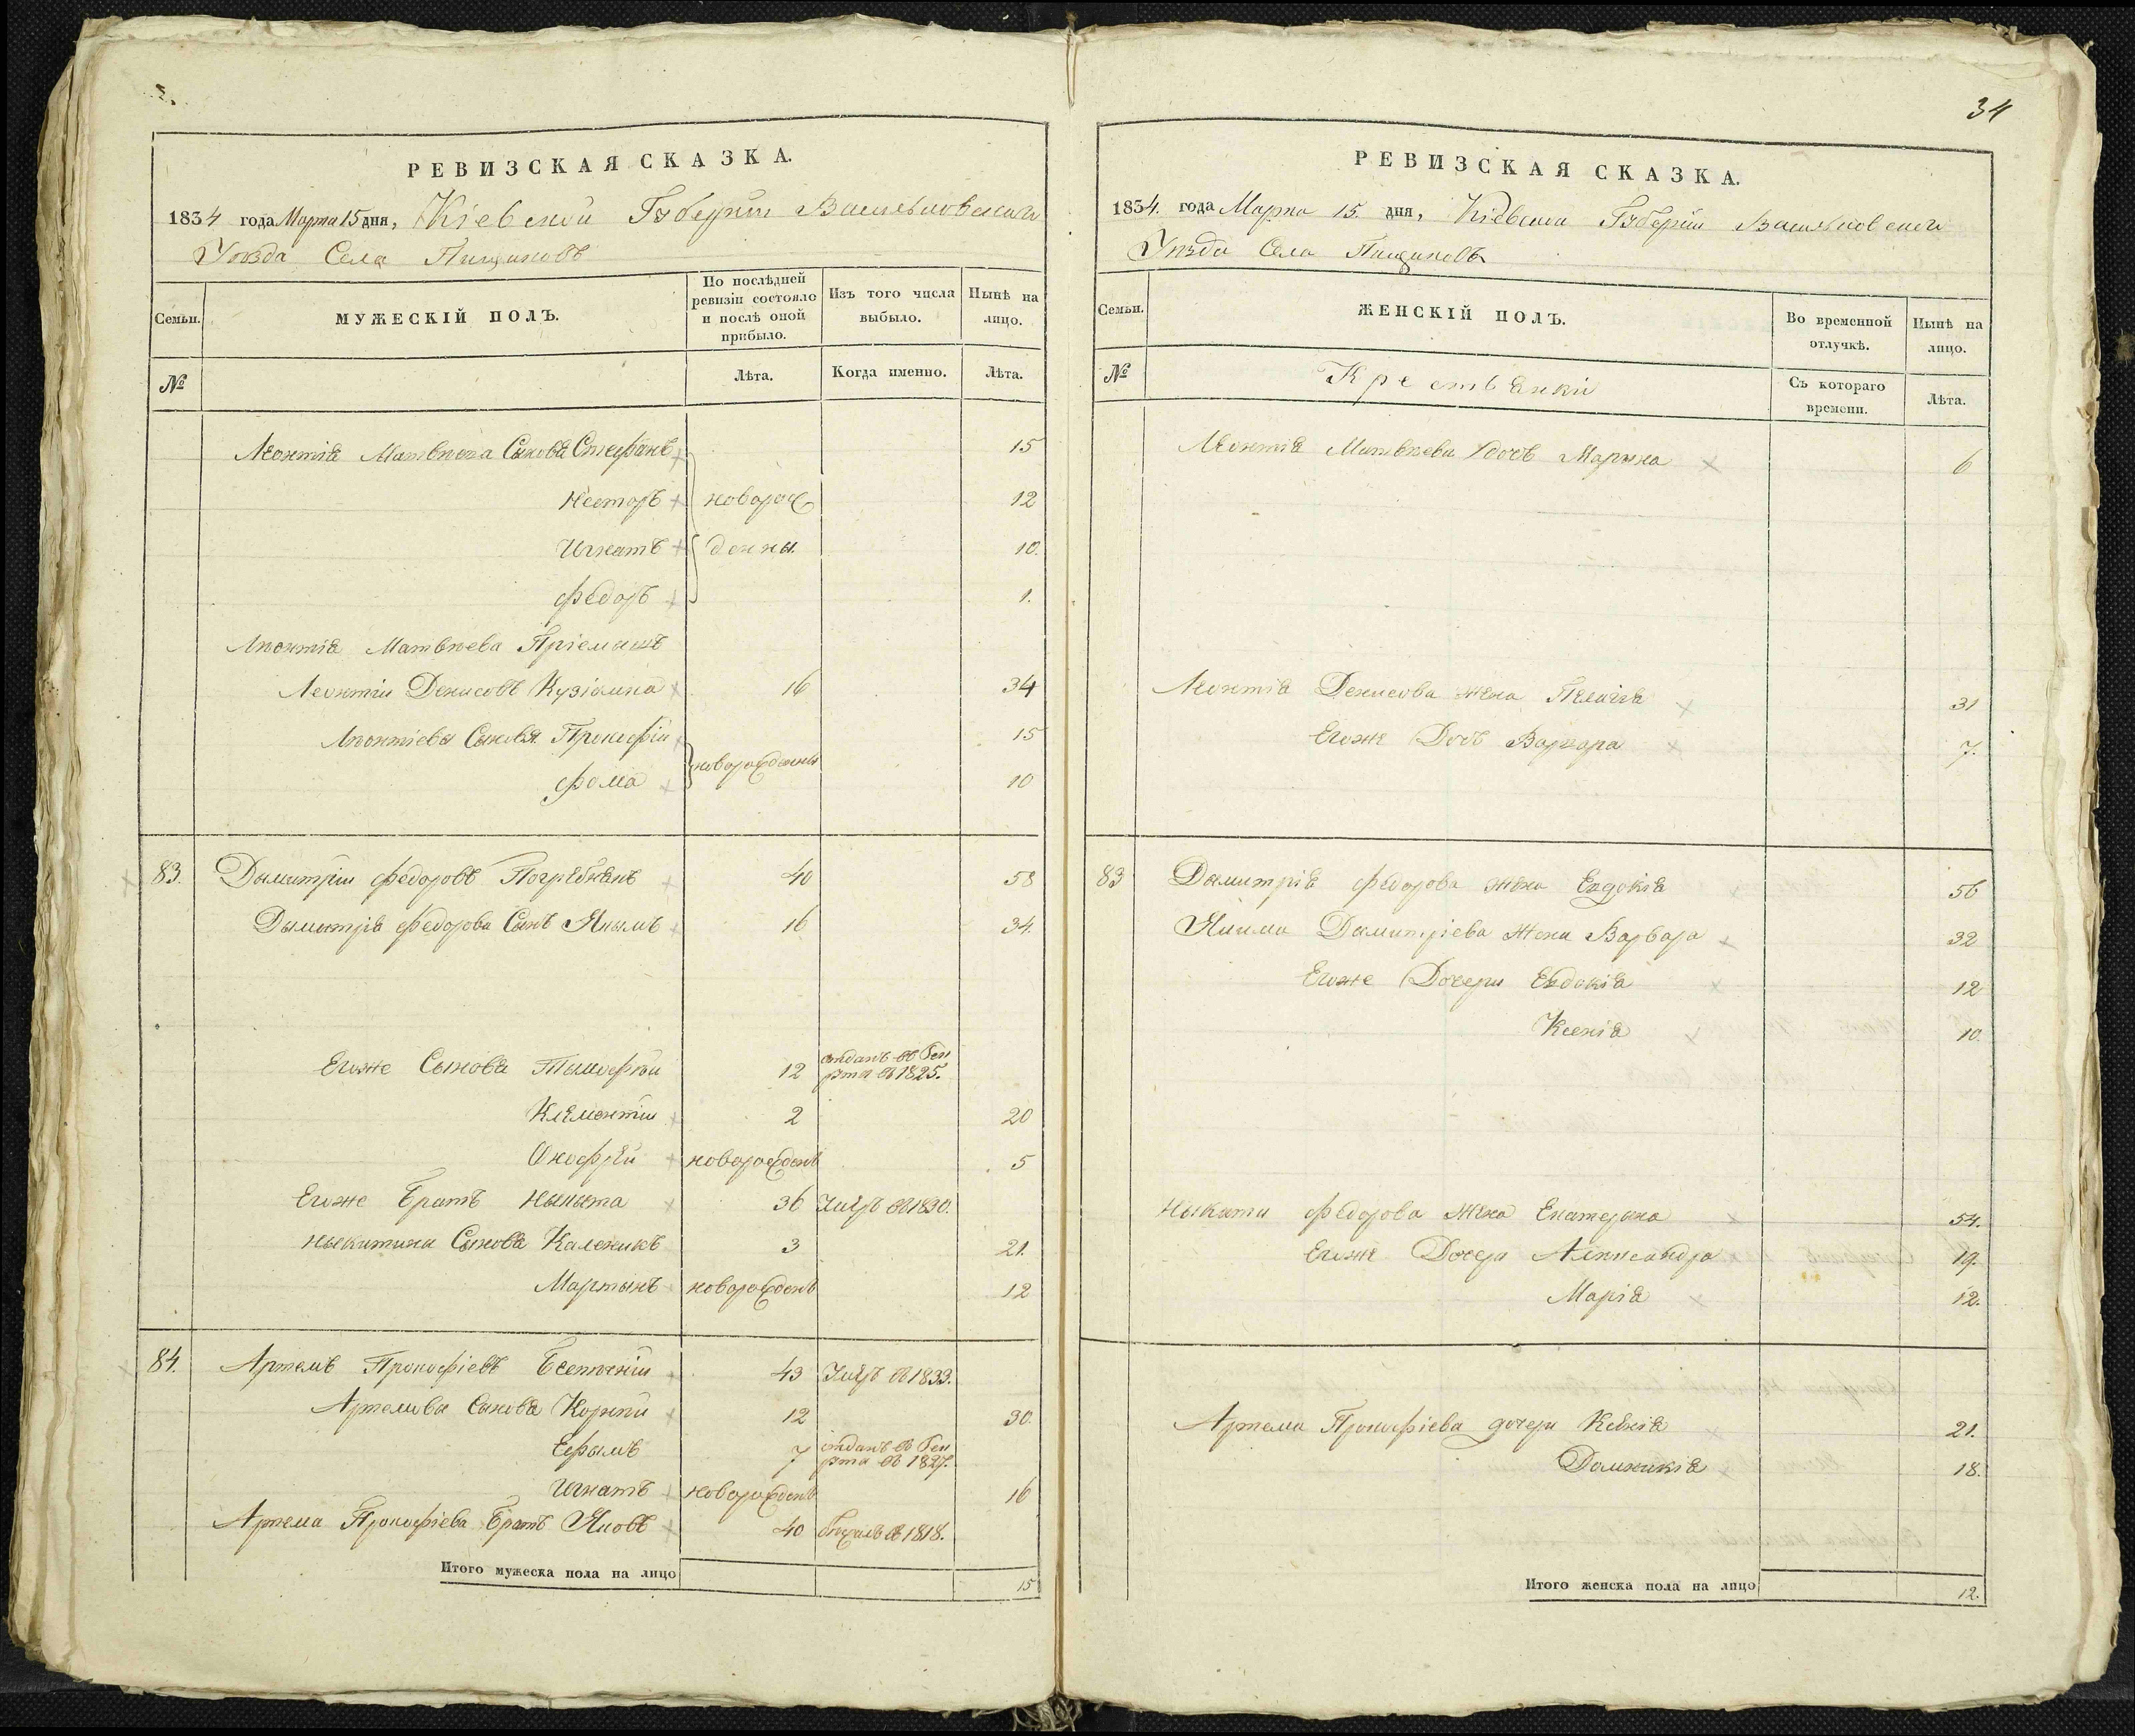 34
РЕВИЗСКАЯ СКАЗКА.
1834 года Марта 15 дня, Кіевской Губерніи Васильковскаго
Уѣзда Села Пищиковъ
Семьи.
МУЖЕСКІЙ ПОЛЪ.
По послѣдней ревизіи состояло и послѣ оной прибыло.
Изъ того числа выбыло.
Нынѣ на лицо.
№
Лѣта.
Когда именно.
Лѣта.
Леонтія Матвѣева Сыновя Стефанъ 15
Несторъ новорож 12
Игнатъ денны. 10.
Федоръ 1.
Леонтія Матвѣева Пріемышъ
Леонтіи Денисовъ Кузіомка 16 34
Леонтіева Сыновя Прокофій 15
новорожденны
Фома 10
83. Дымитріи Федоровъ Погребнякъ 40 58
Дымитрія Федорова Сынъ Якымъ 16 34.
Егоже Сыновя Тымофѣй 12 отданъ въ Рек
рта въ 1825.
Клементіи 2 20
Онофрей новорожденъ 5
Егоже Братъ Ныкыта 36 Умеръ въ 1830.
Ныкитина Сыновя Каленикъ 3 21.
Мартынъ новорожденъ 12
84. Артемъ Прокофіевъ 43 Умеръ въ 1833.
Артемова Сыновя Корнѣй 12 30.
Ефымъ 7 отданъ въ Рек
рта въ 1827.
Игнатъ новорожденъ 16
Артема Прокофіева Братъ Яковъ 40 въ 1818.
Итого мужеска пола на лицо 15
РЕВИЗСКАЯ СКАЗКА.
1834. года Марта 15. дня, Кіевской Губерніи Васильковскаго
Уѣзда Села Пищиковъ
Семьи.
ЖЕНСКІЙ ПОЛЪ.
Во временной отлучкѣ.
Нынѣ на лицо.
№
Крестянки
Съ котораго времени.
Лѣта.
Леонтія Матвѣева дочь Марына 6
Леонтія Денисова жена Пелагія 31
Егоже Дочь Варвара 7.
83 Дымитрія Федорова жена Евдокія 56
Якима Дымитріева Жена Варвара 32
Егоже Дочери Евдокія 12
Ксенія 10.
Ныкиты Федорова жена Екатерына 54.
Егоже Дочери Александра 19.
Марія 12.
Артема Прокофіева дочери Ксенія 21.
Домникія 18.
Итого женска пола на лицо 12.